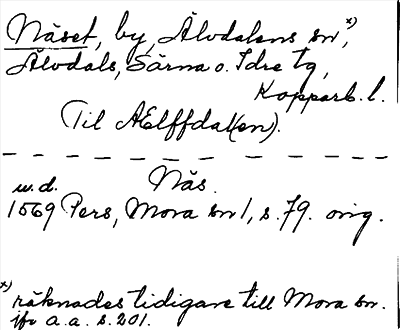 Näset, by, Älvdalens sn*),
Älvdals, Särna o. Idre tg,
Kopparb. l.
Til AElffdal(en).
w.d. Näs.
1569 Pers, Mora sn 1, s. 79. orig.
*) räknades tidigare till Mora sn.
jfr a.a. s. 201.